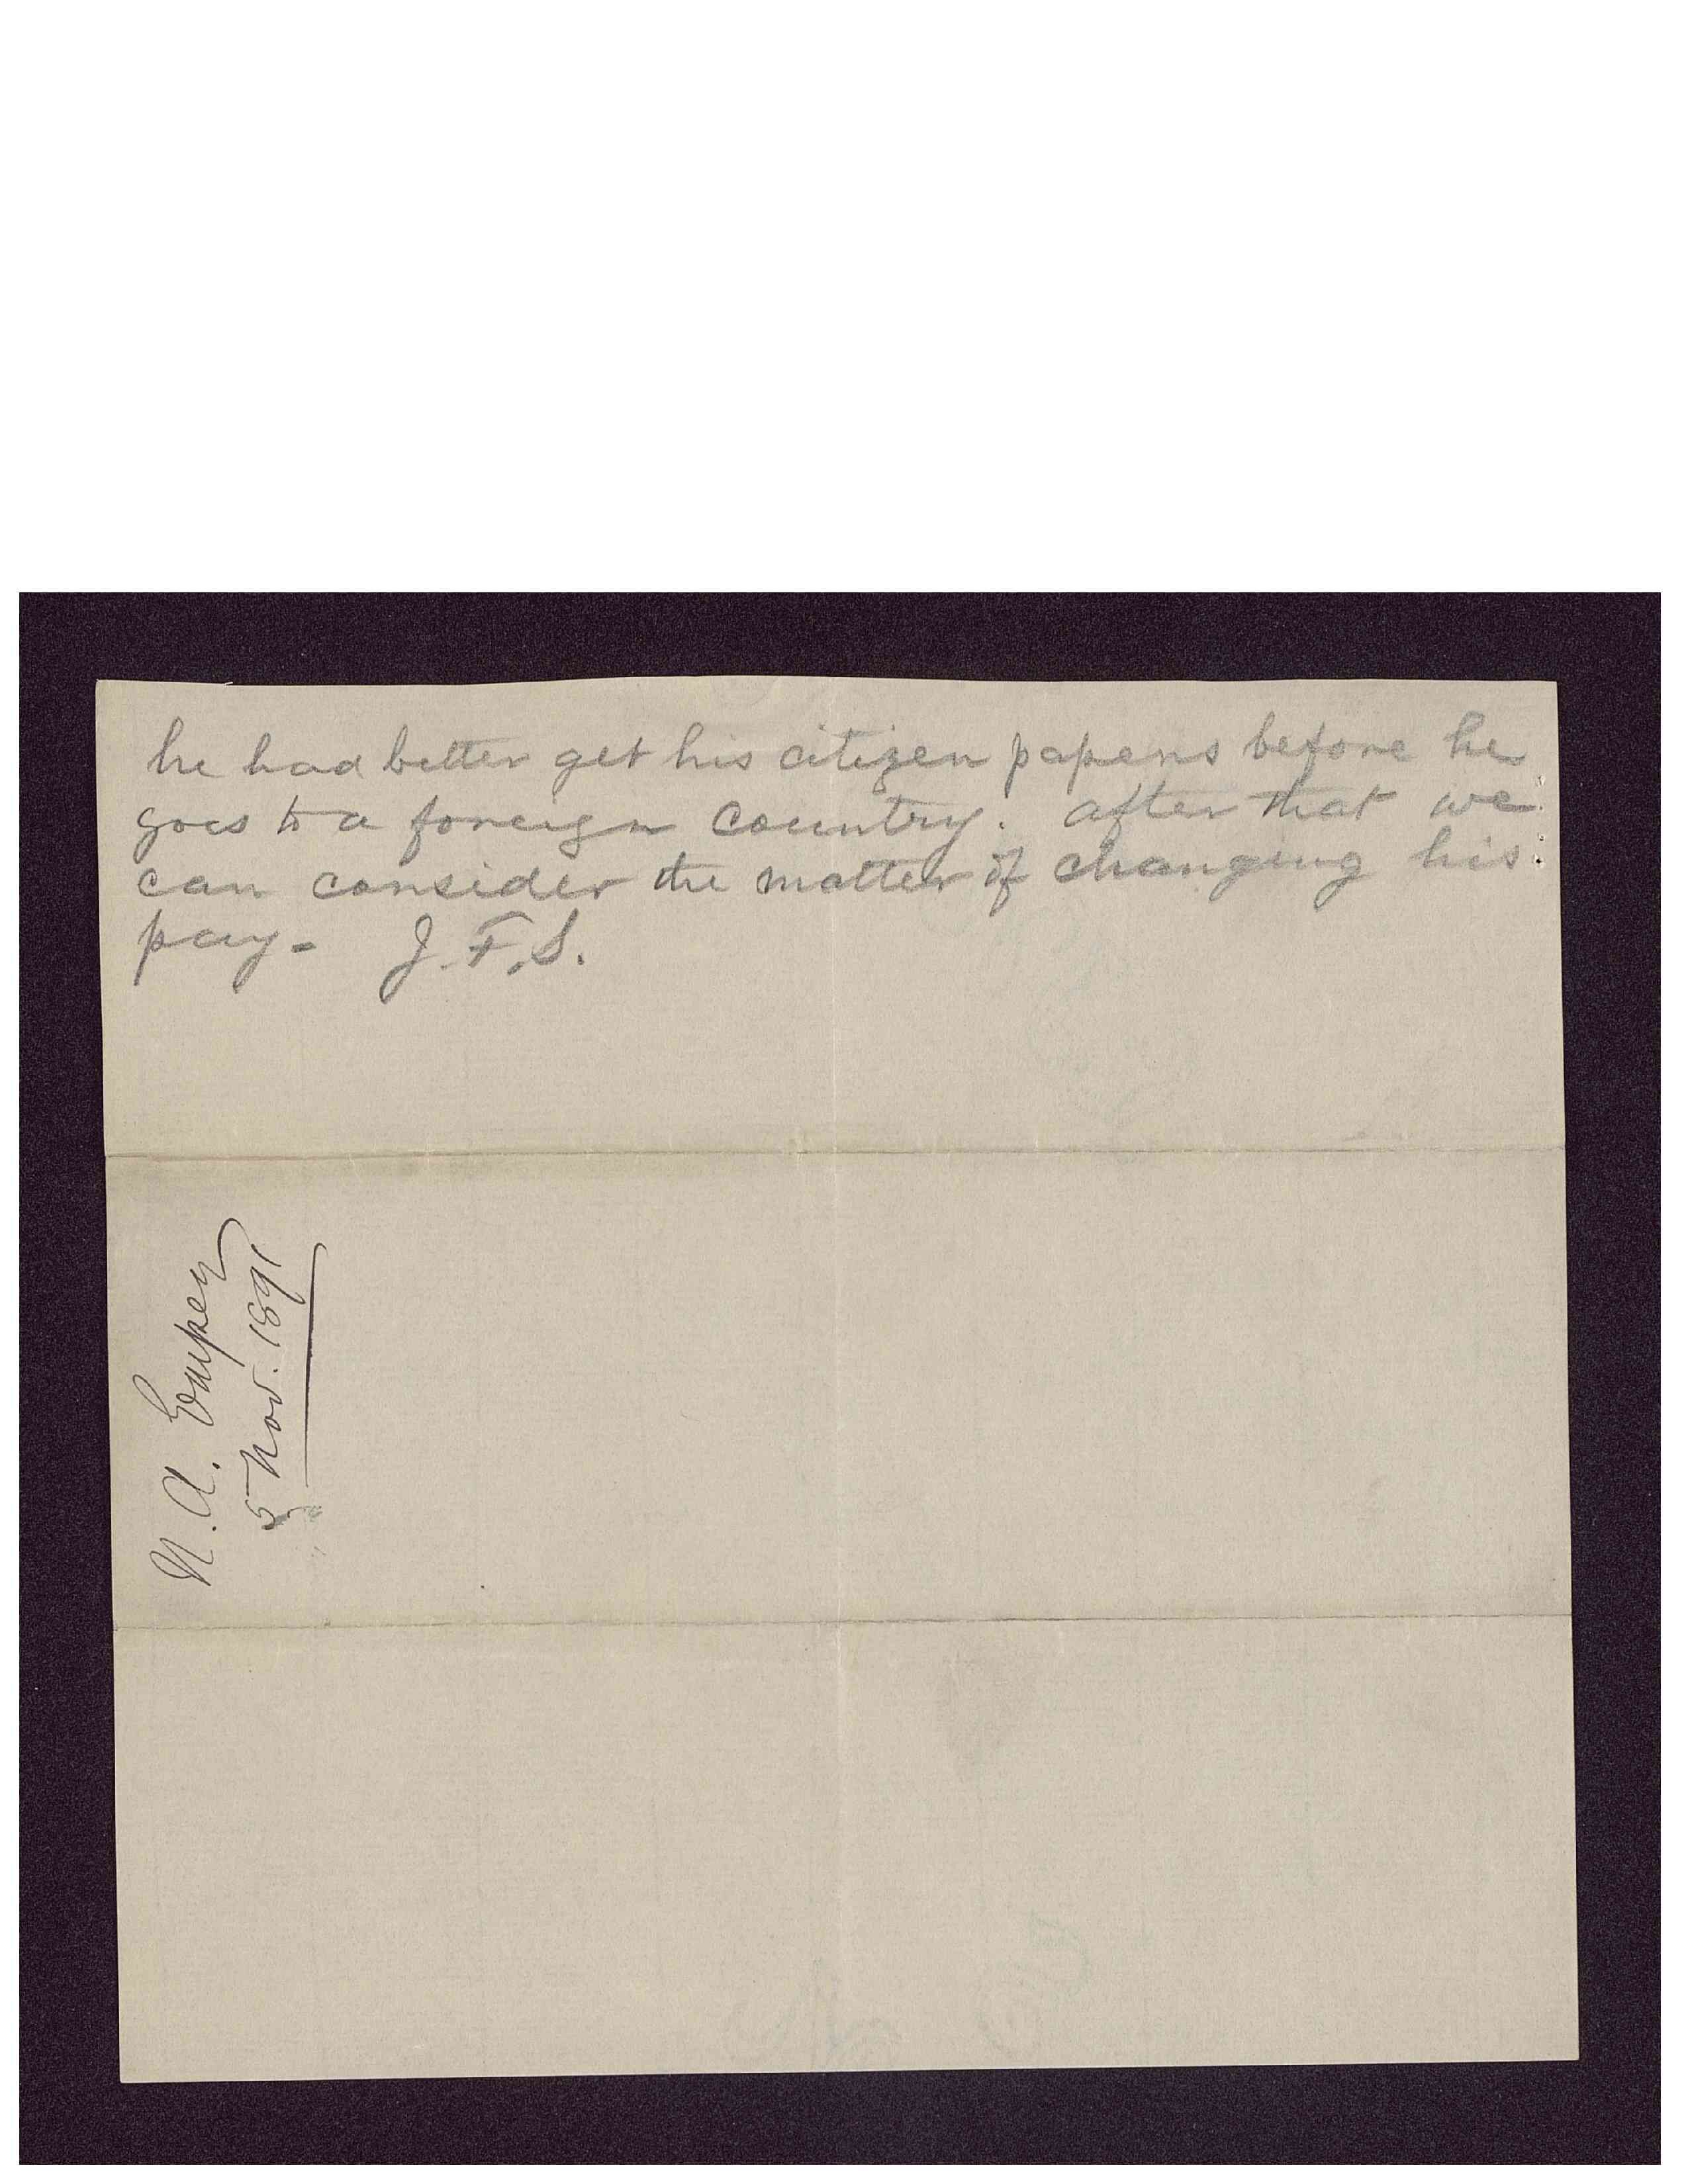 he had better get his citizen papers before he
goes to a foreign country. after that we
can consider the matter of changing his
pay- J.F.S.
N. A. Empey
5 Nov. 1891